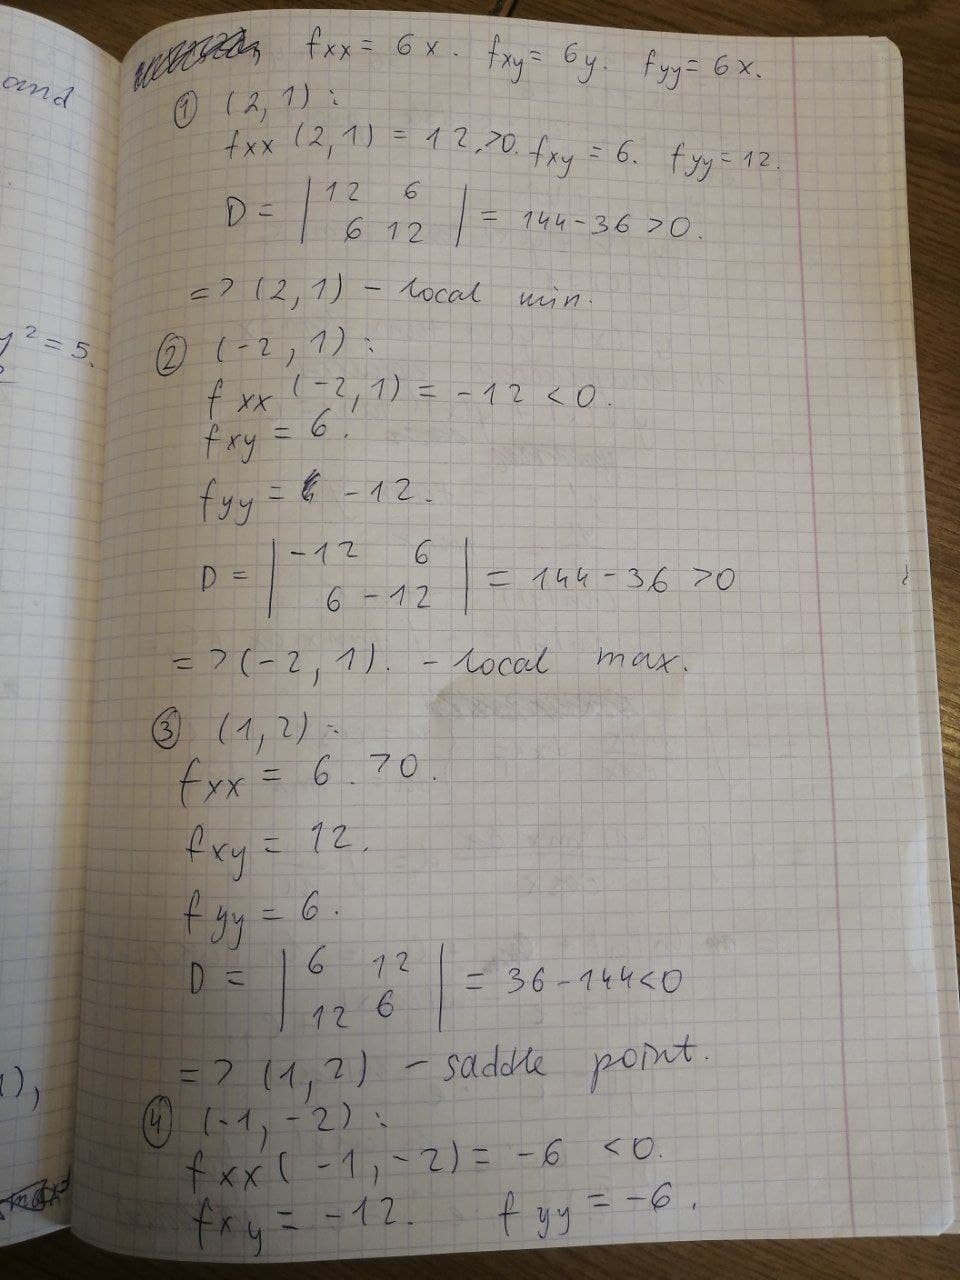 and
y² = 5.
1),
fxx = 6x. fxy = 6y. fyy = 6x.
① (2,1):
fxx (2,1) = 12 >0. fxy = 6. fyy = 12.
D = | 12 6
6 12 | = 144 - 36 > 0.
=> (2,1) - local min.
② (-2,1):
fxx (-2,1) = -12 < 0.
fxy = 6.
fyy = -12.
D = | -12 6
6 -12 | = 144 - 36 > 0
=> (-2,1). - local max.
③ (1,2):
fxx = 6. >0.
fxy = 12.
fyy = 6.
D = | 6 12
12 6 | = 36 - 144 < 0
=> (1,2) - saddle point.
④ (-1,-2):
fxx (-1,-2) = -6 < 0.
fxy = -12. fyy = -6.